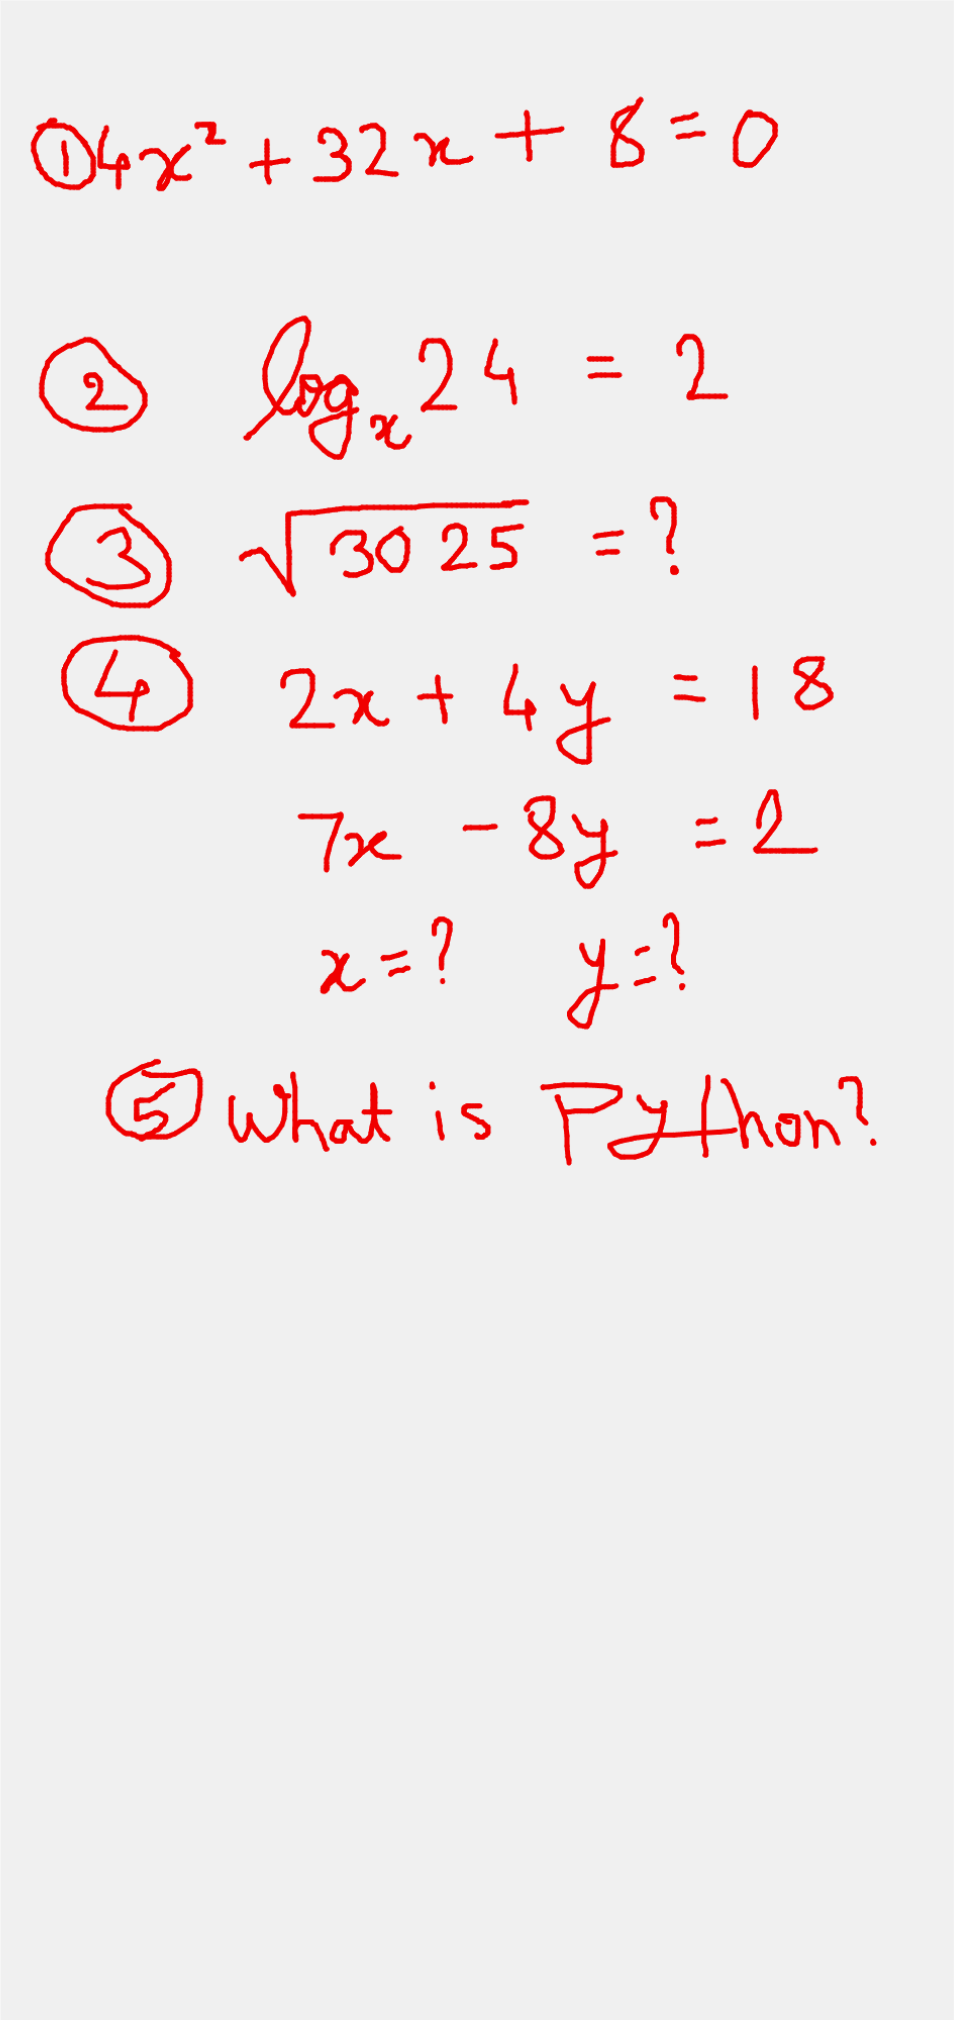 ① 4x² + 32x + 8 = 0
② logₓ 24 = 2
③ √3025 = ?
④ 2x + 4y = 18
7x - 8y = 2
x = ? y = ?
⑤ What is Python?